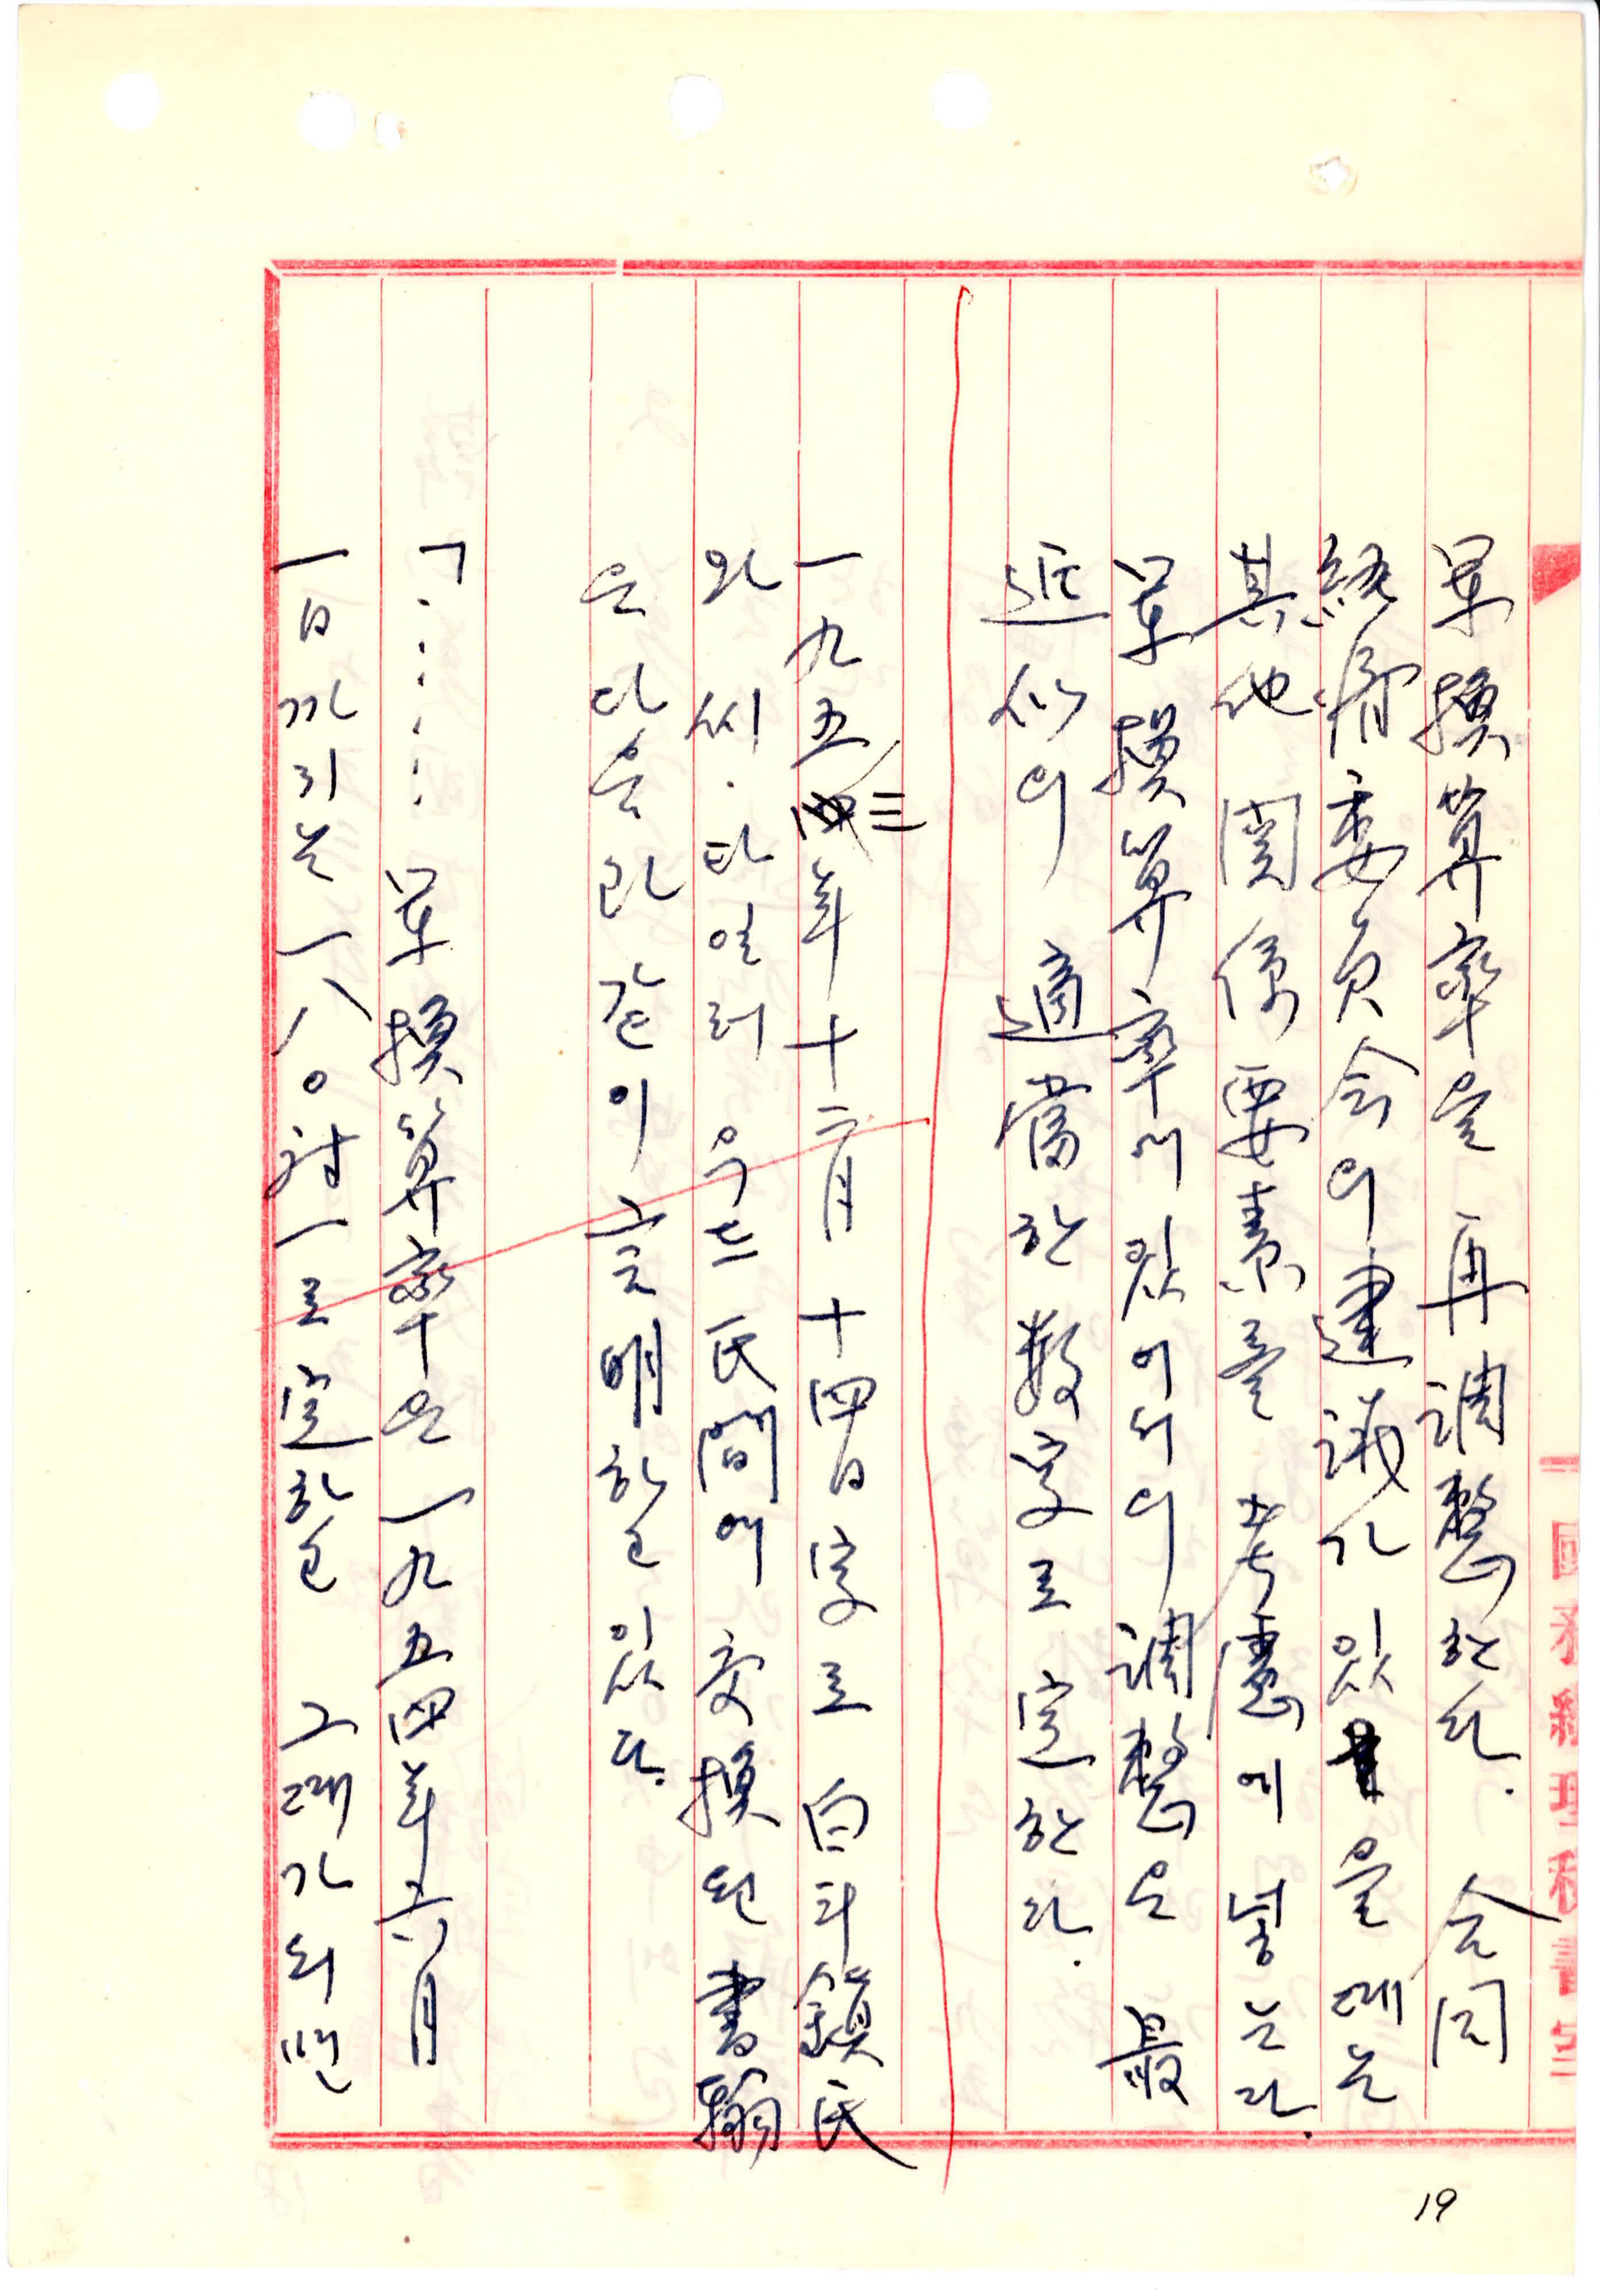 國務總理秘書室
單換算率를 再調整한다. 合同
經濟委員会의 建議가 있을 때는
其他 関係要素를 考慮에 넣는다.
單換算率에 있어서의 調整은 最
近似의 適當한 数字로 定한다.
一九五三年十二月十四日字로 白斗鎮氏
와 씨.타일러 우드氏間에 交換된 書翰
은 다음과 같이 言明하고 있다.
「……單換算率은 一九五四年六月
一日까지는 一八〇対一로 定하고 그때가 되면
19